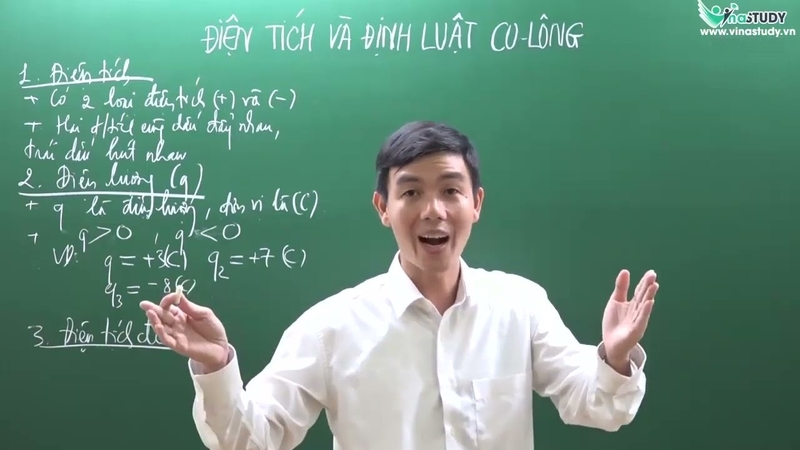 VinaSTUDY
www.vinastudy.vn
ĐIỆN TÍCH VÀ ĐỊNH LUẬT CU-LÔNG
1. Điện tích
+ Có 2 loại điện tích (+) và (-)
+ Hai đ/tích cùng dấu đẩy nhau,
trái dấu hút nhau
2. Điện lượng (q)
+ q là điện lượng, đơn vị là (C)
+ q > 0 , q < 0
VD: q = +3(C) q₂ = +7 (C)
q₃ = -8(C)
3. Điện tích